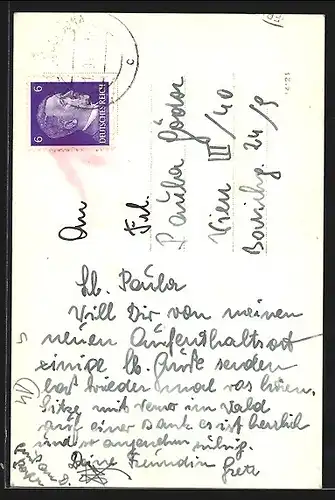 6 6
DEUTSCHES REICH
c
An
Frl.
Paula
Wien III/40
24/9
Lb. Paula
Will Dir von meinen
neuen Aufenthaltsort
einige lb. Grüße senden
laß wieder mal was hören.
Sitze mit im Wald
auf einer Bank es ist herrlich
und so angenehm ruhig.
Deine Freundin
Greta